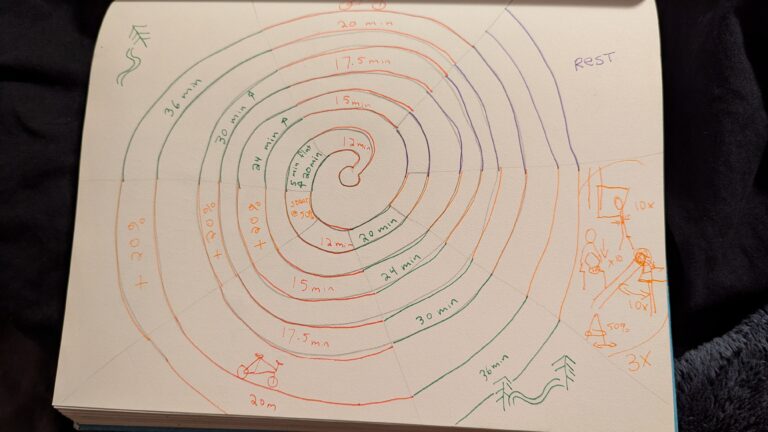 20 min
REST
17.5 min
36 min
15 min
30 min
24 min
12 min
5 min flat
↑ 20 min
start
@ 50%
+ 20%
+ 20%
+ 20%
10x
x10
10x
50%
3x
20 min
12 min
24 min
15 min
30 min
17.5 min
36 min
20 m